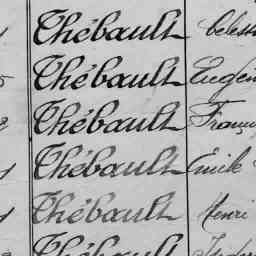 Thébault
Thébault Eugèn
Thébault Franço
Thébault Emile
Thébault Henri
Thébault